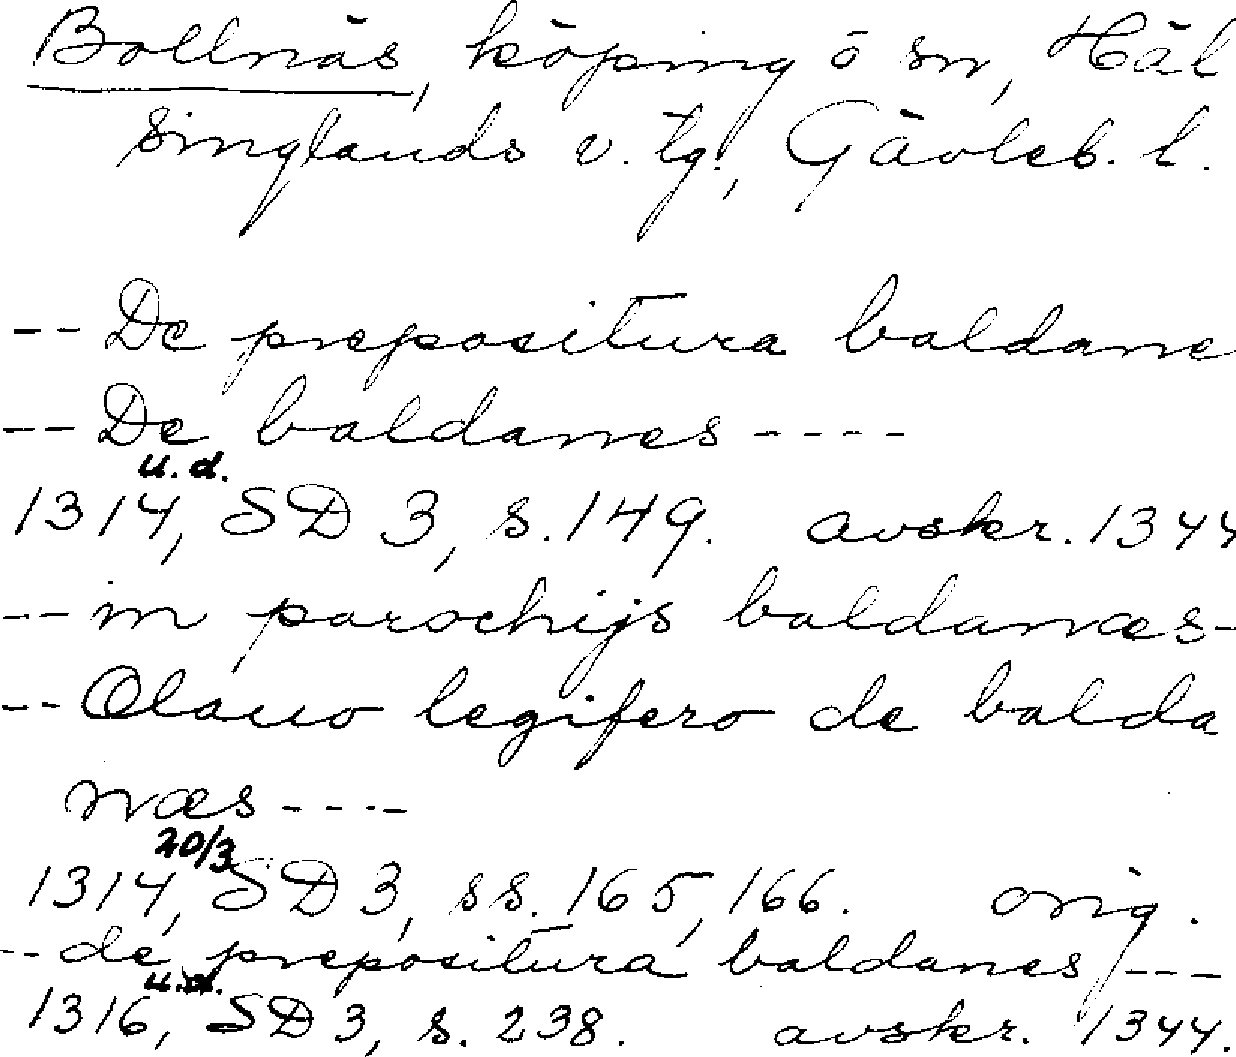 Bollnäs, köping o sn, Häl
singlands v. tg., Gävleb. l.
-- De prepositura baldane
-- De baldanes ----
u. d.
1314, SD 3, s. 149. avskr. 1344
-- in parochijs baldanæs-
-- Olauo legifero de balda
næs ----
20/3
1314, SD 3, ss. 165, 166. orig.
-- de prepositura baldanes ---
u. d.
1316, SD 3, s. 238. avskr. 1344.